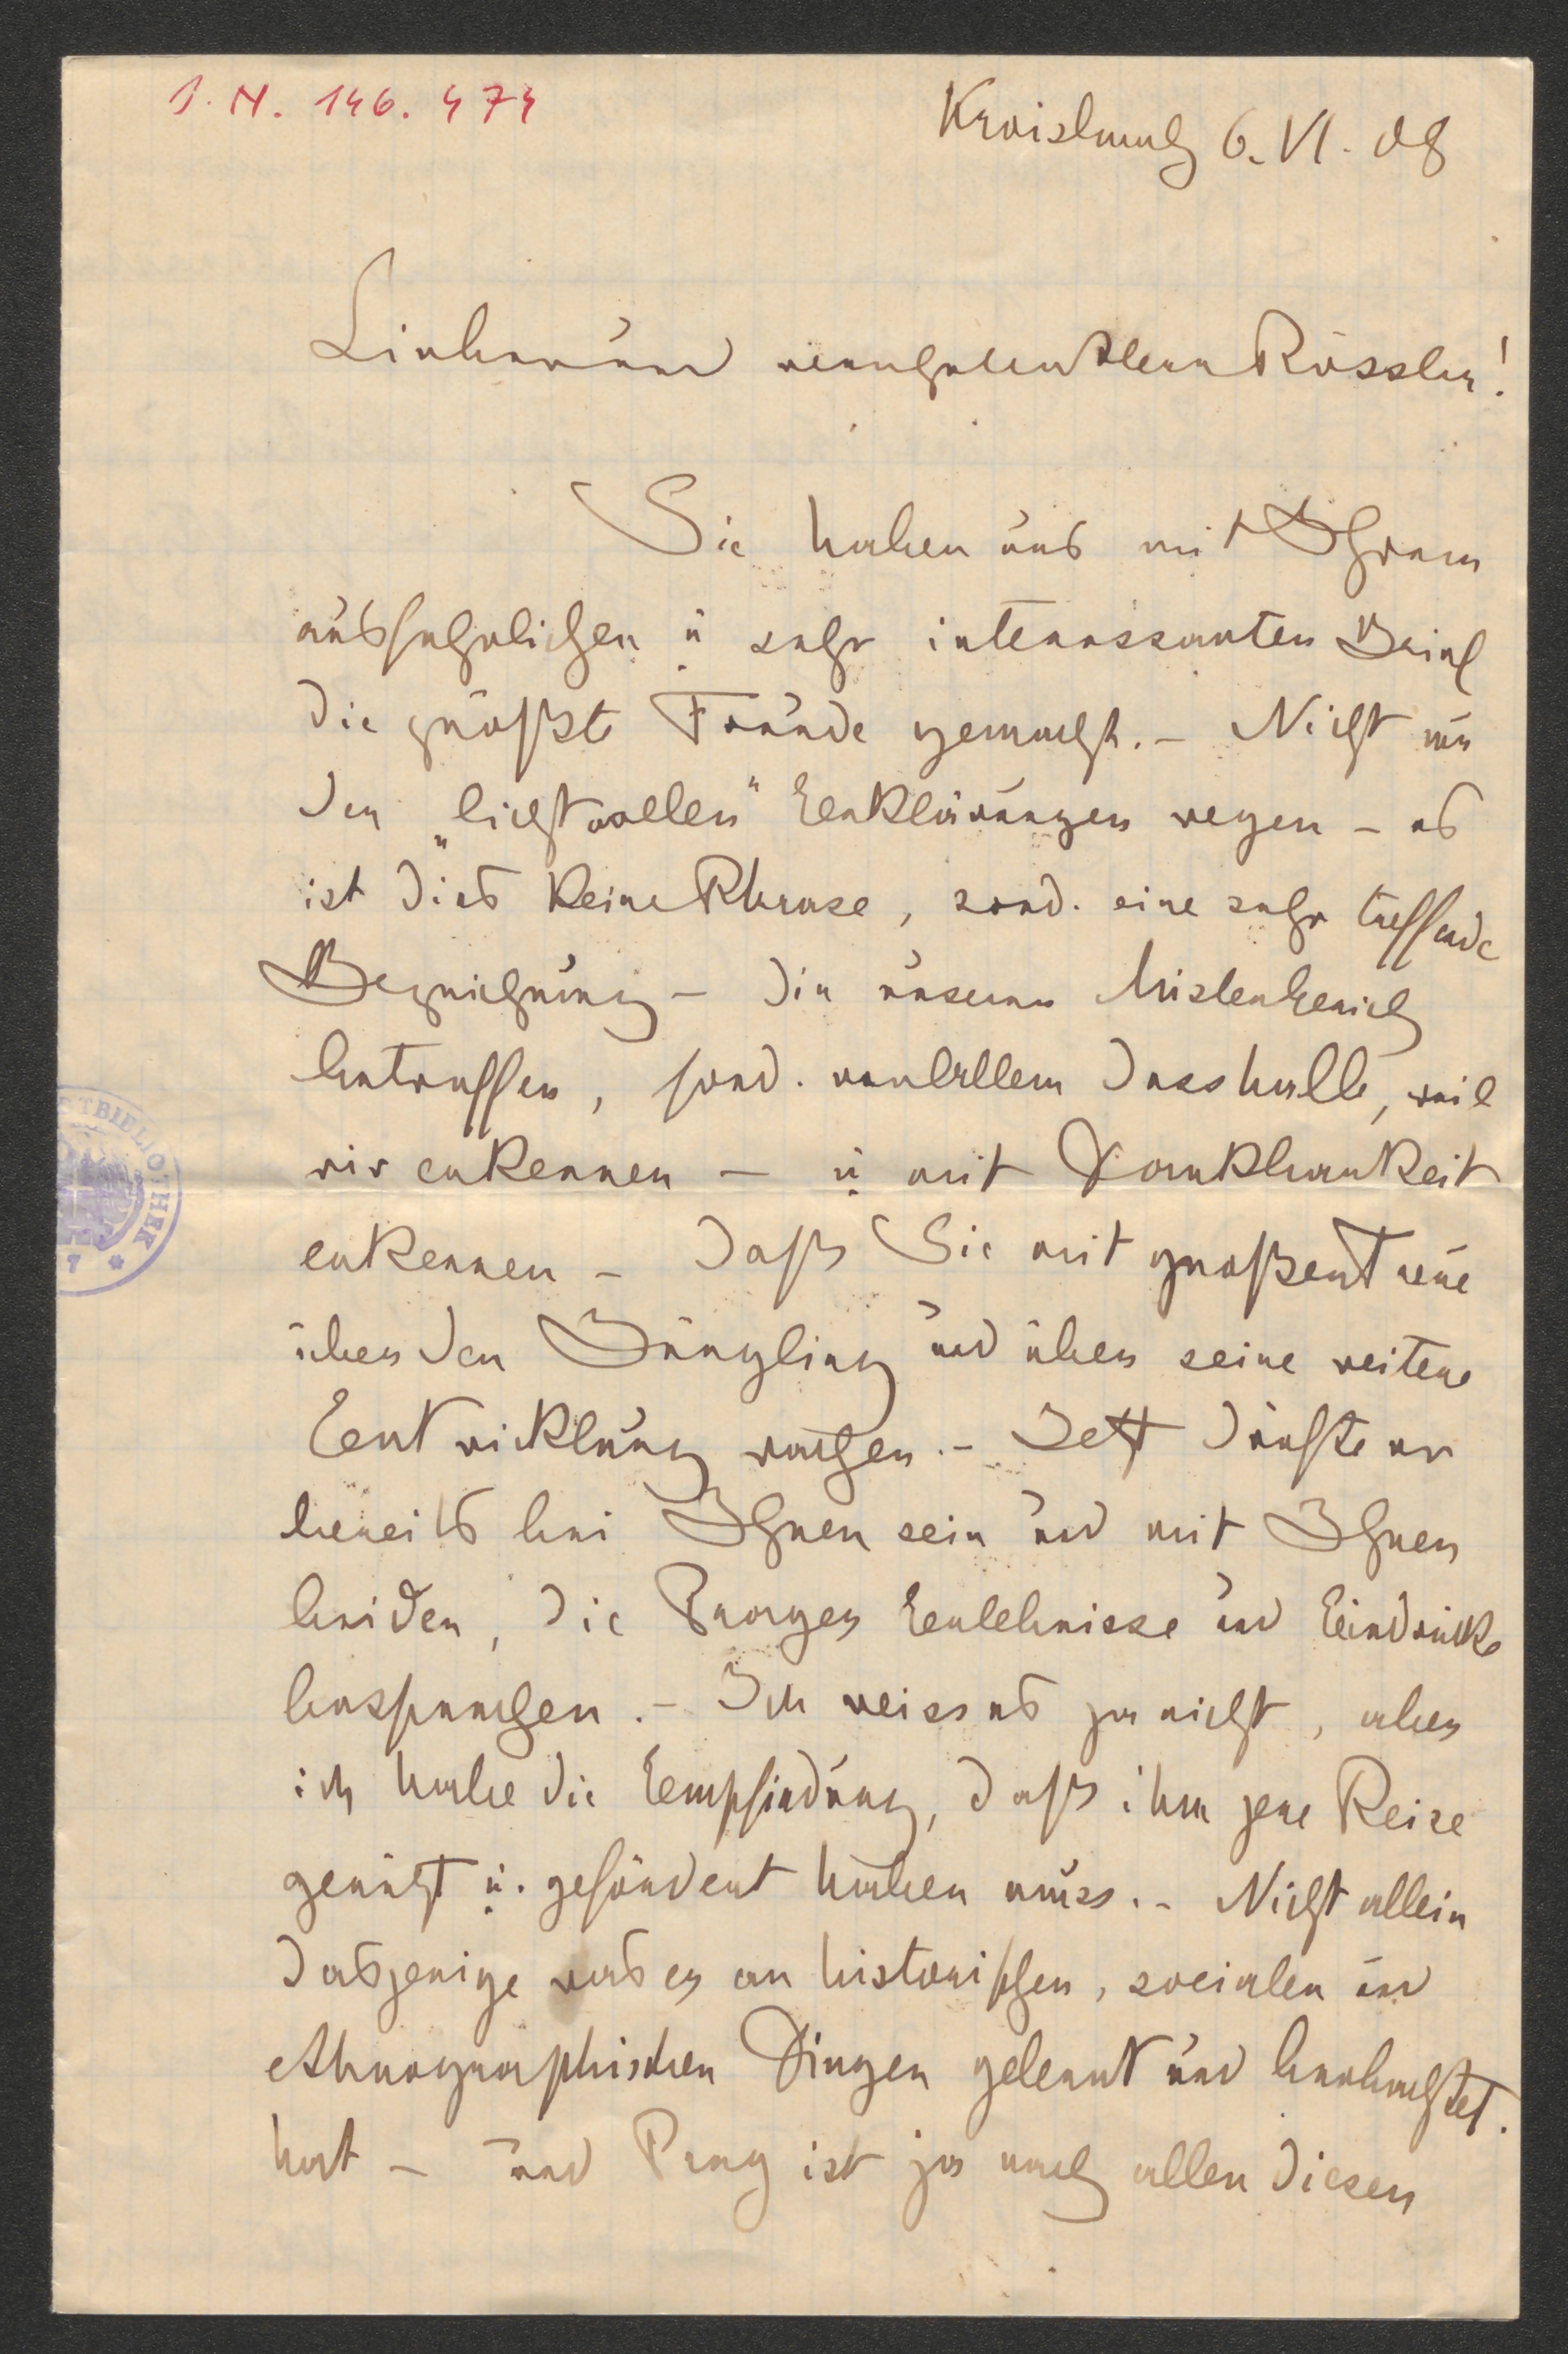 I. N. 146.474
Kroisbach 6. VI. 08
Lieber und verehrter Herr Rössler!
Sie haben uns mit Ihrem
ausführlichen u sehr interessanten Brief
die größte Freude gemacht. – Nicht nur
der „lichtvollen" Erklärungen wegen – es
ist dies keine Phrase, sond. eine sehr treffende
Bezeichnung – die unseren
betreffen, sond. vor allem desshalb, weil
wir erkennen – u mit Dankbarkeit
erkennen – daß Sie mit großer Treue
über den Jüngling und über seine weitere
Entwicklung wachen. – Jetzt dürfte er
bereits bei Ihnen sein und mit Ihnen
beiden, die Prager Erlebnisse und Eindrücke
besprechen. – Ich weiss es ja nicht, aber
ich habe die Empfindung, daß ihm jene Reise
genützt u. gefördert haben muss. – Nicht allein
dasjenige was er an historischen, socialen und
ethnographischen Dingen gelernt und beobachtet
hat – und Prag ist ja nach allen diesen
STBIBLIOTHEK